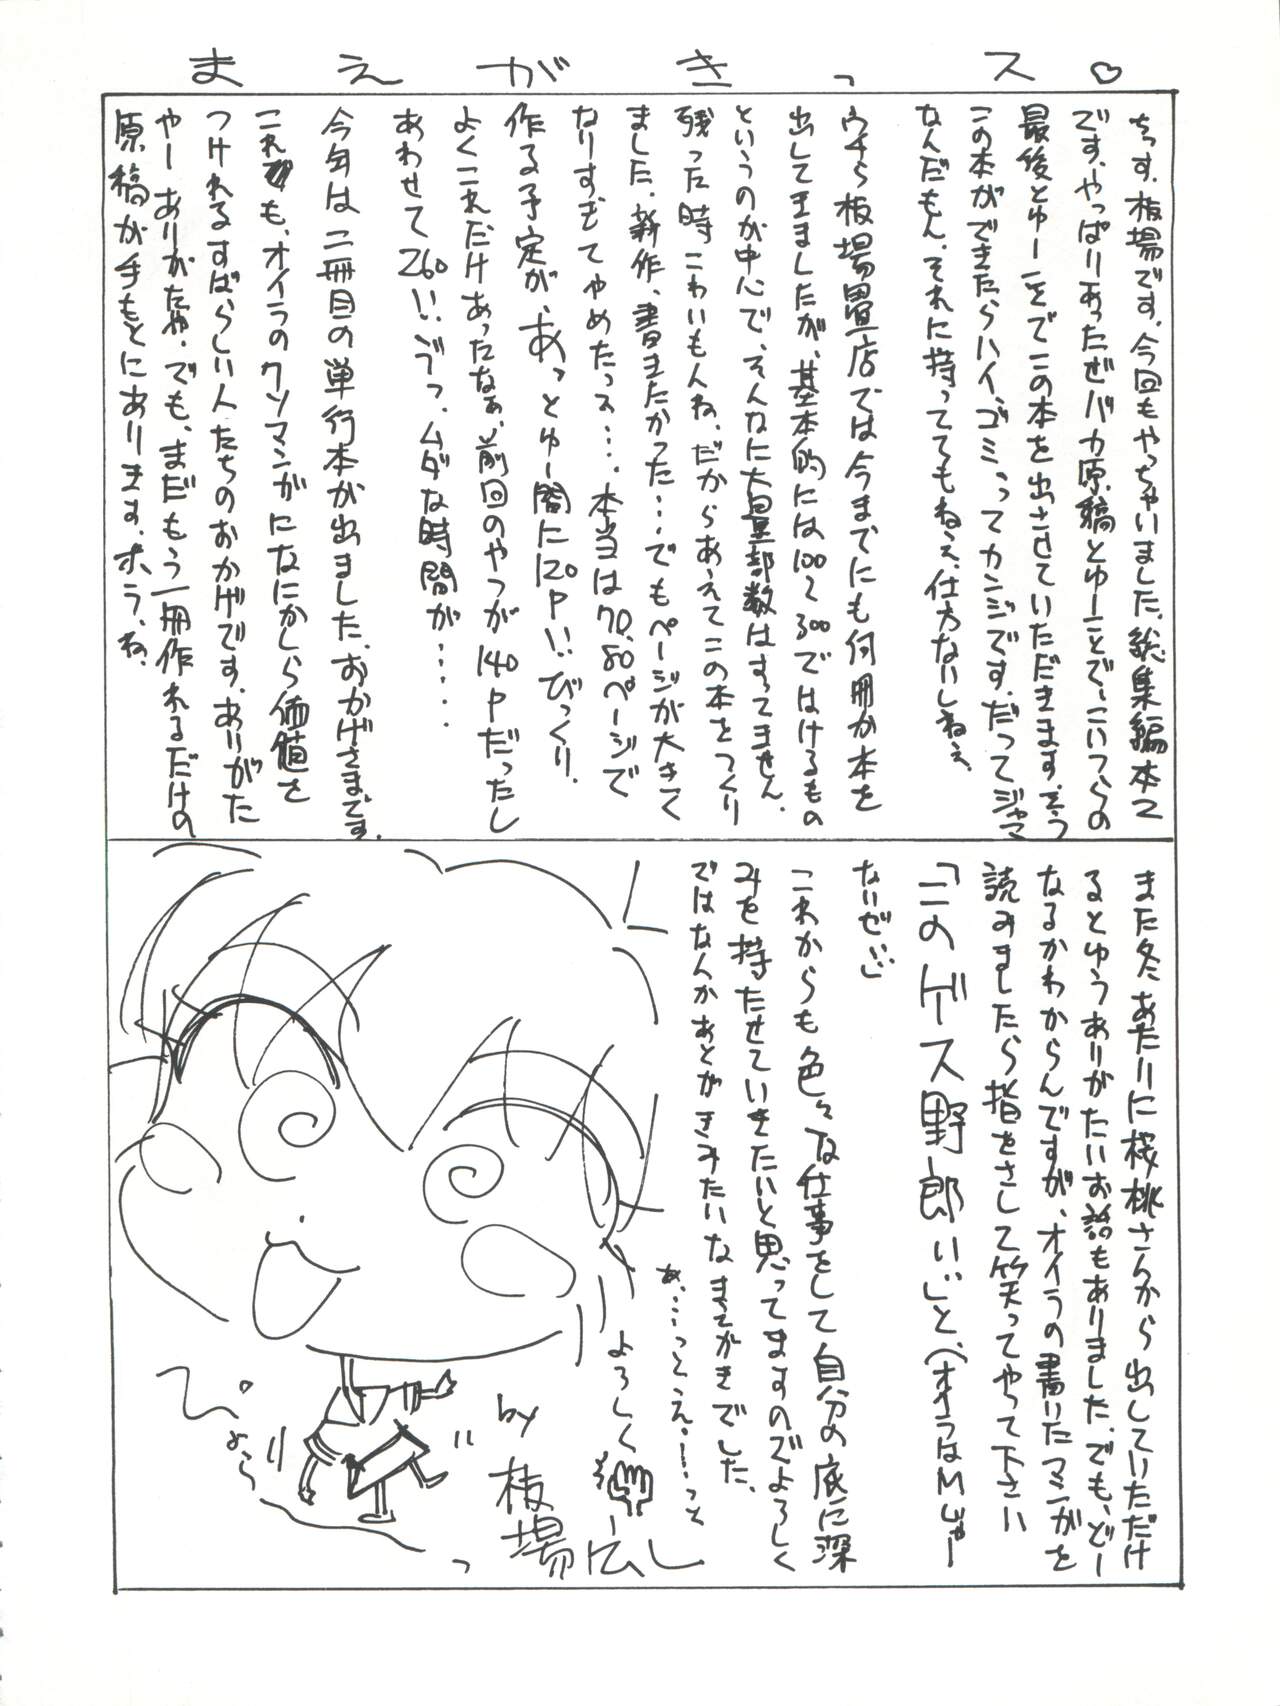 まえがきっス♡
ちす。板場です。今回もやっちゃいました。総集編本2
です。やっぱりあったぜバカ原稿とゆーことで、こいつらの
最後とゆーことでこの本を出させていただきます。そう
この本ができたらハイ、ゴミってカンジです。だってジャマ
なんだもん。それに持っててもねえ、仕方ないしねえ。
ウチら板場畳店では今までにも何冊か本を
出してきましたが、基本的には100〜300ではけるもの
というのが中心で、そんなに大量部数はすってません。
残った時こわいもんね。だからあえてこの本をつくり
ました。新作、書きたかった…でもページが大きく
なりすぎてやめたっス…。本当は70、80ページで
作る予定が、あっとゆー間に120P!!びっくり。
よくこれだけあったなぁ、前回のやつが140Pだったし
あわせて260!!ゔっ、ムダな時間が……
今年は二冊目の単行本が出ました。おかげさまです。
これも、オイラのクソマンガになにかしら価値を
つけれるすばらしい人たちのおかげです。ありがた
やーありがたや。でも、まだもう一冊作れるだけの
原稿が手もとにあります。ホラ、ね。
また冬あたりに桜桃さんから出していただけ
るとゆうありがたいお話もありました。でも、どー
なるかわからんですが、オイラの書いたマンガを
読みましたら指をさして笑ってやって下さい
「このゲス野郎!!」と、(オイラはMじゃー
ないぜ!!)
これからも色々な仕事をして自分の底に深
みを持たせていきたいと思ってますのでよろしく
ではなんかあとがきみたいなまえがきでした。
あ、…っとえ、…っと
よろしく
by
板場広し
ぴょらり
っ